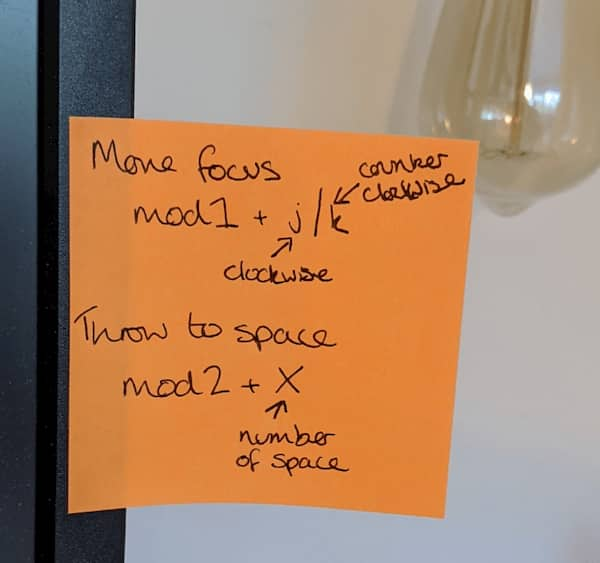 Move focus
counter
clockwise
mod1 + j/k
clockwise
Throw to space
mod2 + X
number
of space